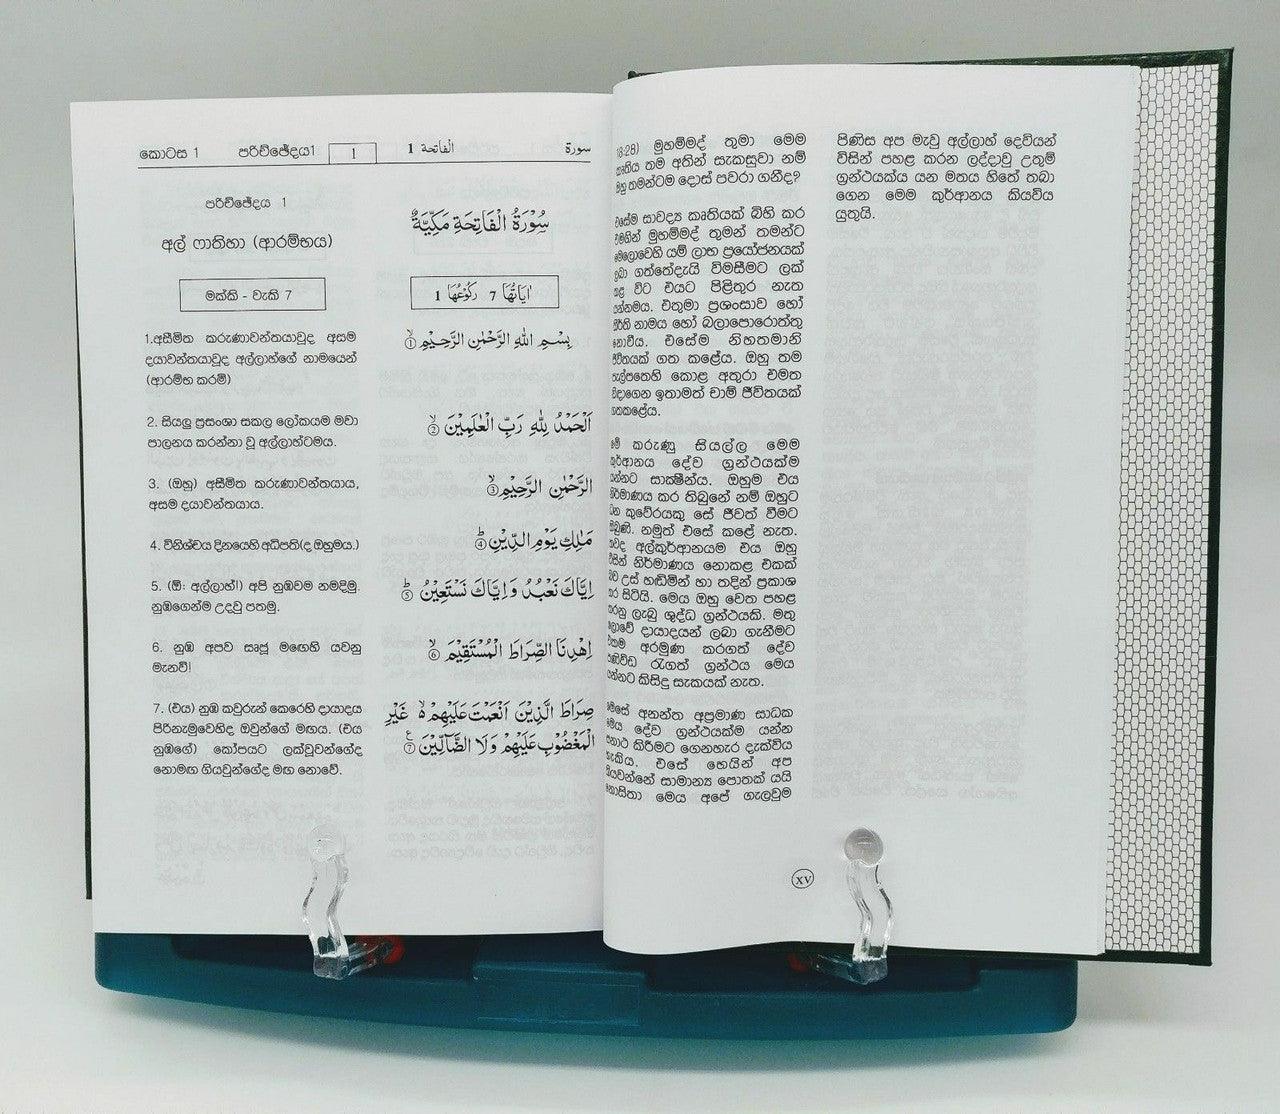 කොටස 1 පරිච්ඡේදය1 1 الْفاتحة 1 سورة
පරිච්ඡේදය 1
අල් ෆාතිහා (ආරම්භය)
මක්කි - වැකි 7
1.අසීමිත කරුණාවන්තයාවූද අසම
දයාවන්තයාවූද අල්ලාහ්ගේ නාමයෙන්
(ආරම්භ කරමි)
2. සියලු ප්‍රසංශා සකල ලෝකයම මවා
පාලනය කරන්නා වූ අල්ලාහ්ටමය.
3. (ඔහු) අසීමිත කරුණාවන්තයාය,
අසම දයාවන්තයාය.
4. විනිශ්චය දිනයෙහි අධිපති(ද ඔහුමය.)
5. (ඕ: අල්ලාහ්!) අපි නුඹවම නමදිමු.
නුඹගෙන්ම උදවු පතමු.
6. නුඹ අපව සෘජු මඟෙහි යවනු
මැනව!
7. (එය) නුඹ කවුරුන් කෙරෙහි දායාදය
පිරිනැමුවෙහිද ඔවුන්ගේ මඟය. (එය
නුඹගේ) කෝපයට ලක්වූවන්ගේද
නොමඟ ගියවුන්ගේද මඟ නොවේ.
سُوْرَةُ الْفَاتِحَةِ مَكِّيَّةٌ
اٰيَاتُهَا 7 رُكُوْعُهَا 1
بِسْمِ اللّٰهِ الرَّحْمٰنِ الرَّحِيْمِ ۙ①
اَلْحَمْدُ لِلّٰهِ رَبِّ الْعٰلَمِيْنَ ۙ②
الرَّحْمٰنِ الرَّحِيْمِ ۙ③
مٰلِكِ يَوْمِ الدِّيْنِ ؕ④
اِيَّاكَ نَعْبُدُ وَاِيَّاكَ نَسْتَعِيْنُ ؕ⑤
اِهْدِنَا الصِّرَاطَ الْمُسْتَقِيْمَ ۙ⑥
صِرَاطَ الَّذِيْنَ اَنْعَمْتَ عَلَيْهِمْ ۙ۬ غَيْرِ
الْمَغْضُوْبِ عَلَيْهِمْ وَلَا الضَّآلِّيْنَ ⑦
8:28) මුහම්මද් තුමා මෙම
කෘතිය තම අතින් සැකසුවා නම්
ඔහු තමන්ටම දොස් පවරා ගනීද?
එසේම සාවද්‍ය කෘතියක් බිහි කර
එමගින් මුහම්මද් තුමන් තමන්ට
මෙලොවෙහි යම් ලාභ ප්‍රයෝජනයක්
ලබා ගත්තේදැයි විමසීමට ලක්
කළ විට එයට පිළිතුර නැත
යන්නමය. එතුමා ප්‍රශංසාව හෝ
කීර්ති නාමය හෝ බලාපොරොත්තු
නොවීය. එසේම නිහතමානි
ජීවිතයක් ගත කළේය. ඔහු තම
පැල්පතෙහි කොළ අතුරා එමත
විදාගෙන ඉතාමත් චාම් ජීවිතයක්
ගතකළේය.
මේ කරුණු සියල්ල මෙම
කුර්ආනය දේව ග්‍රන්ථයක්ම
යන්නට සාක්ෂීන්ය. ඔහුම එය
නිර්මාණය කර තිබුනේ නම් ඔහුට
ධන කුවේරයකු සේ ජීවත් වීමට
තිබුණි. නමුත් එසේ කළේ නැත.
තවද අල්කුර්ආනයම එය ඔහු
විසින් නිර්මාණය නොකළ එකක්
බව උස් හඬිමින් හා තදින් ප්‍රකාශ
කර සිටියි. මෙය ඔහු වෙත පහළ
කරනු ලැබූ ශුද්ධ ග්‍රන්ථයකි. මතු
ලොවේ දායාදයන් ලබා ගැනීමට
එකම අරමුණ කරගත් දේව
පණිවිඩ රැගත් ග්‍රන්ථය මෙය
යන්නට කිසිදු සැකයක් නැත.
මෙසේ අනන්ත අප්‍රමාණ සාධක
මෙය දේව ග්‍රන්ථයක්ම යන්න
සනාථ කිරීමට ගෙනහැර දැක්විය
හැකිය. එසේ හෙයින් අප
කියවන්නේ සාමාන්‍ය පොතක් යයි
නොසිතා මෙය අපේ ගැලවුම
පිණිස අප මැවූ අල්ලාහ් දෙවියන්
විසින් පහළ කරන ලද්දාවූ උතුම්
ග්‍රන්ථයක්ය යන මතය හිතේ තබා
ගෙන මෙම කුර්ආනය කියවිය
යුතුයි.
XV